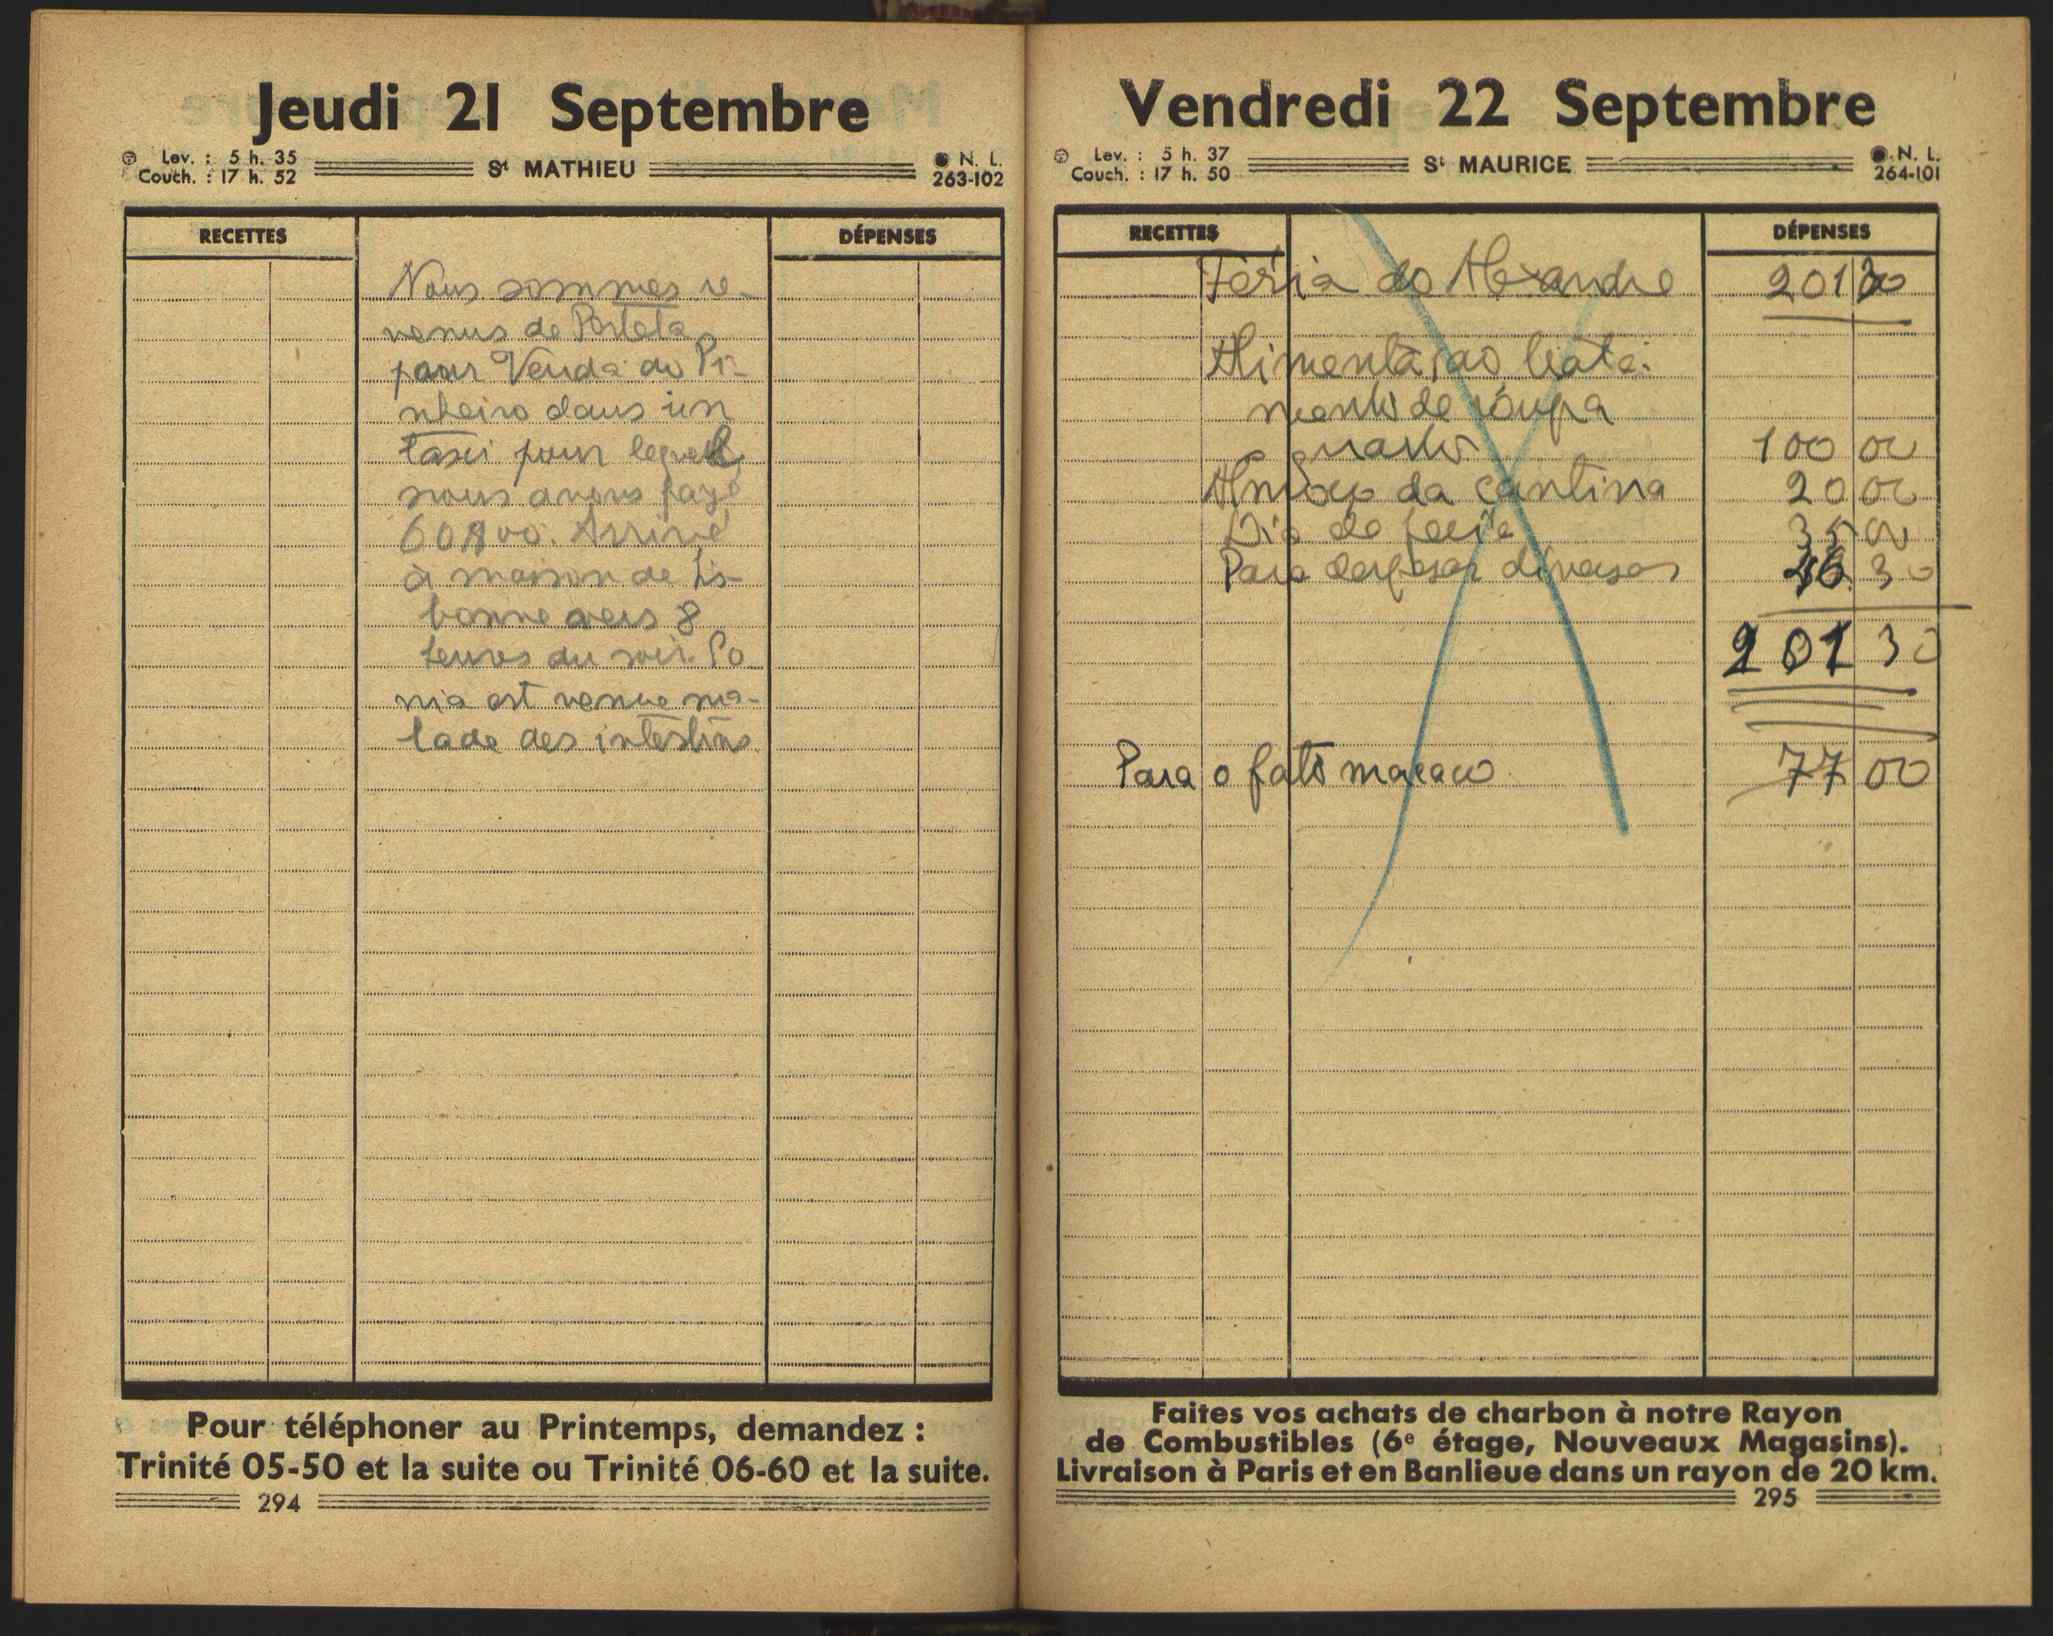 Jeudi 21 Septembre
Lev. : 5 h. 35
Couch. : 17 h. 52
St MATHIEU
N. L.
263-102
RECETTES
DÉPENSES
Nous sommes re-
venus de Portela
pour Venda do Pi-
nheiro dans un
taxi pour lequel
nous avons payé
60$00. Arrivé
à maison de Lis-
bonne vers 8
heures du soir.
nia est venue ma-
lade des intestins.
Pour téléphoner au Printemps, demandez :
Trinité 05-50 et la suite ou Trinité 06-60 et la suite.
294
Vendredi 22 Septembre
Lev. : 5 h. 37
Couch. : 17 h. 50
St MAURICE
N. L.
264-101
RECETTES
DÉPENSES
Féria do Alexandre 201 30
Alimentação
de roupa
quarto 100 00
Almoço da cantina 20 00
Dia de 35 00
Para despesas diversas 46 30
201 30
Para o fato macaco 77 00
Faites vos achats de charbon à notre Rayon
de Combustibles (6e étage, Nouveaux Magasins).
Livraison à Paris et en Banlieue dans un rayon de 20 km.
295